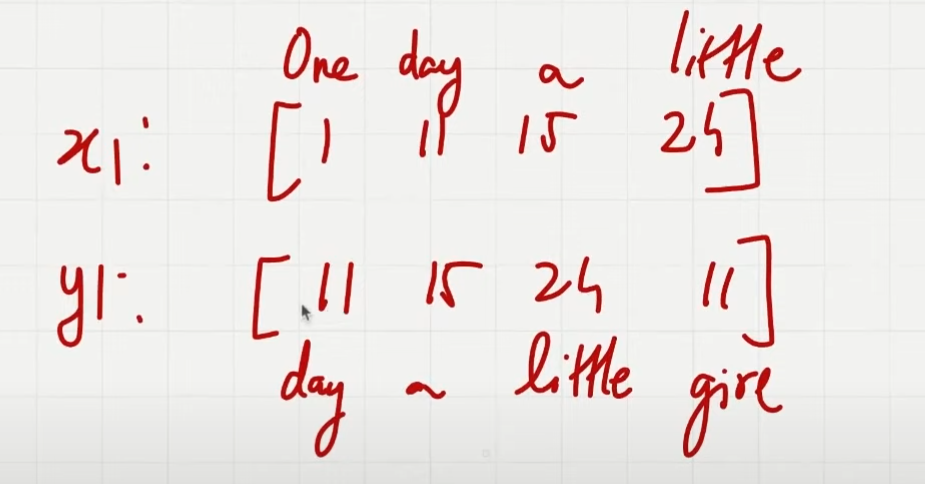 One day a little
x1: [1 11 15 24]
y1: [11 15 24 11]
day a little gire